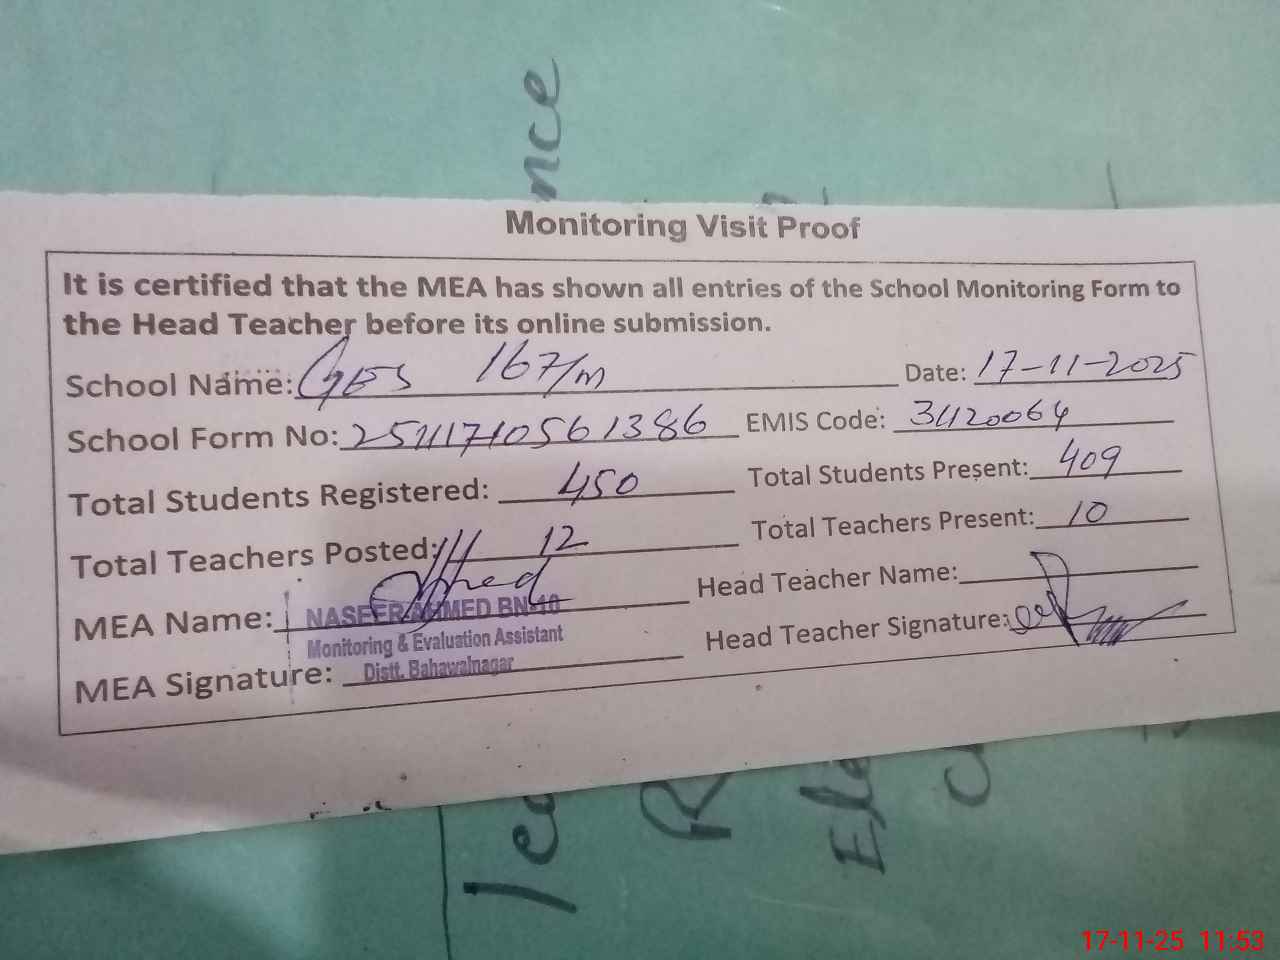 nce
Monitoring Visit Proof
It is certified that the MEA has shown all entries of the School Monitoring Form to
the Head Teacher before its online submission.
School Name: GES 167/m Date: 17-11-2025
School Form No: 25111710561386 EMIS Code: 31120064
Total Students Registered: 450 Total Students Present: 409
Total Teachers Posted: 12 Total Teachers Present: 10
MEA Name: NASEER AHMED BN-10 Head Teacher Name:
Monitoring & Evaluation Assistant
MEA Signature: Distt. Bahawalnagar Head Teacher Signature:
17-11-25 11:53